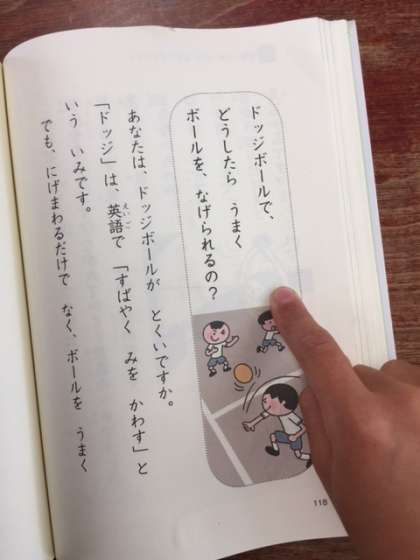 ドッジボールで、
どうしたら うまく
ボールを、なげられるの?
あなたは、ドッジボールが とくいですか。
「ドッジ」は、英語で 「すばやく みを かわす」と
いう いみです。
でも、にげまわるだけで なく、ボールを うまく
えいご
118